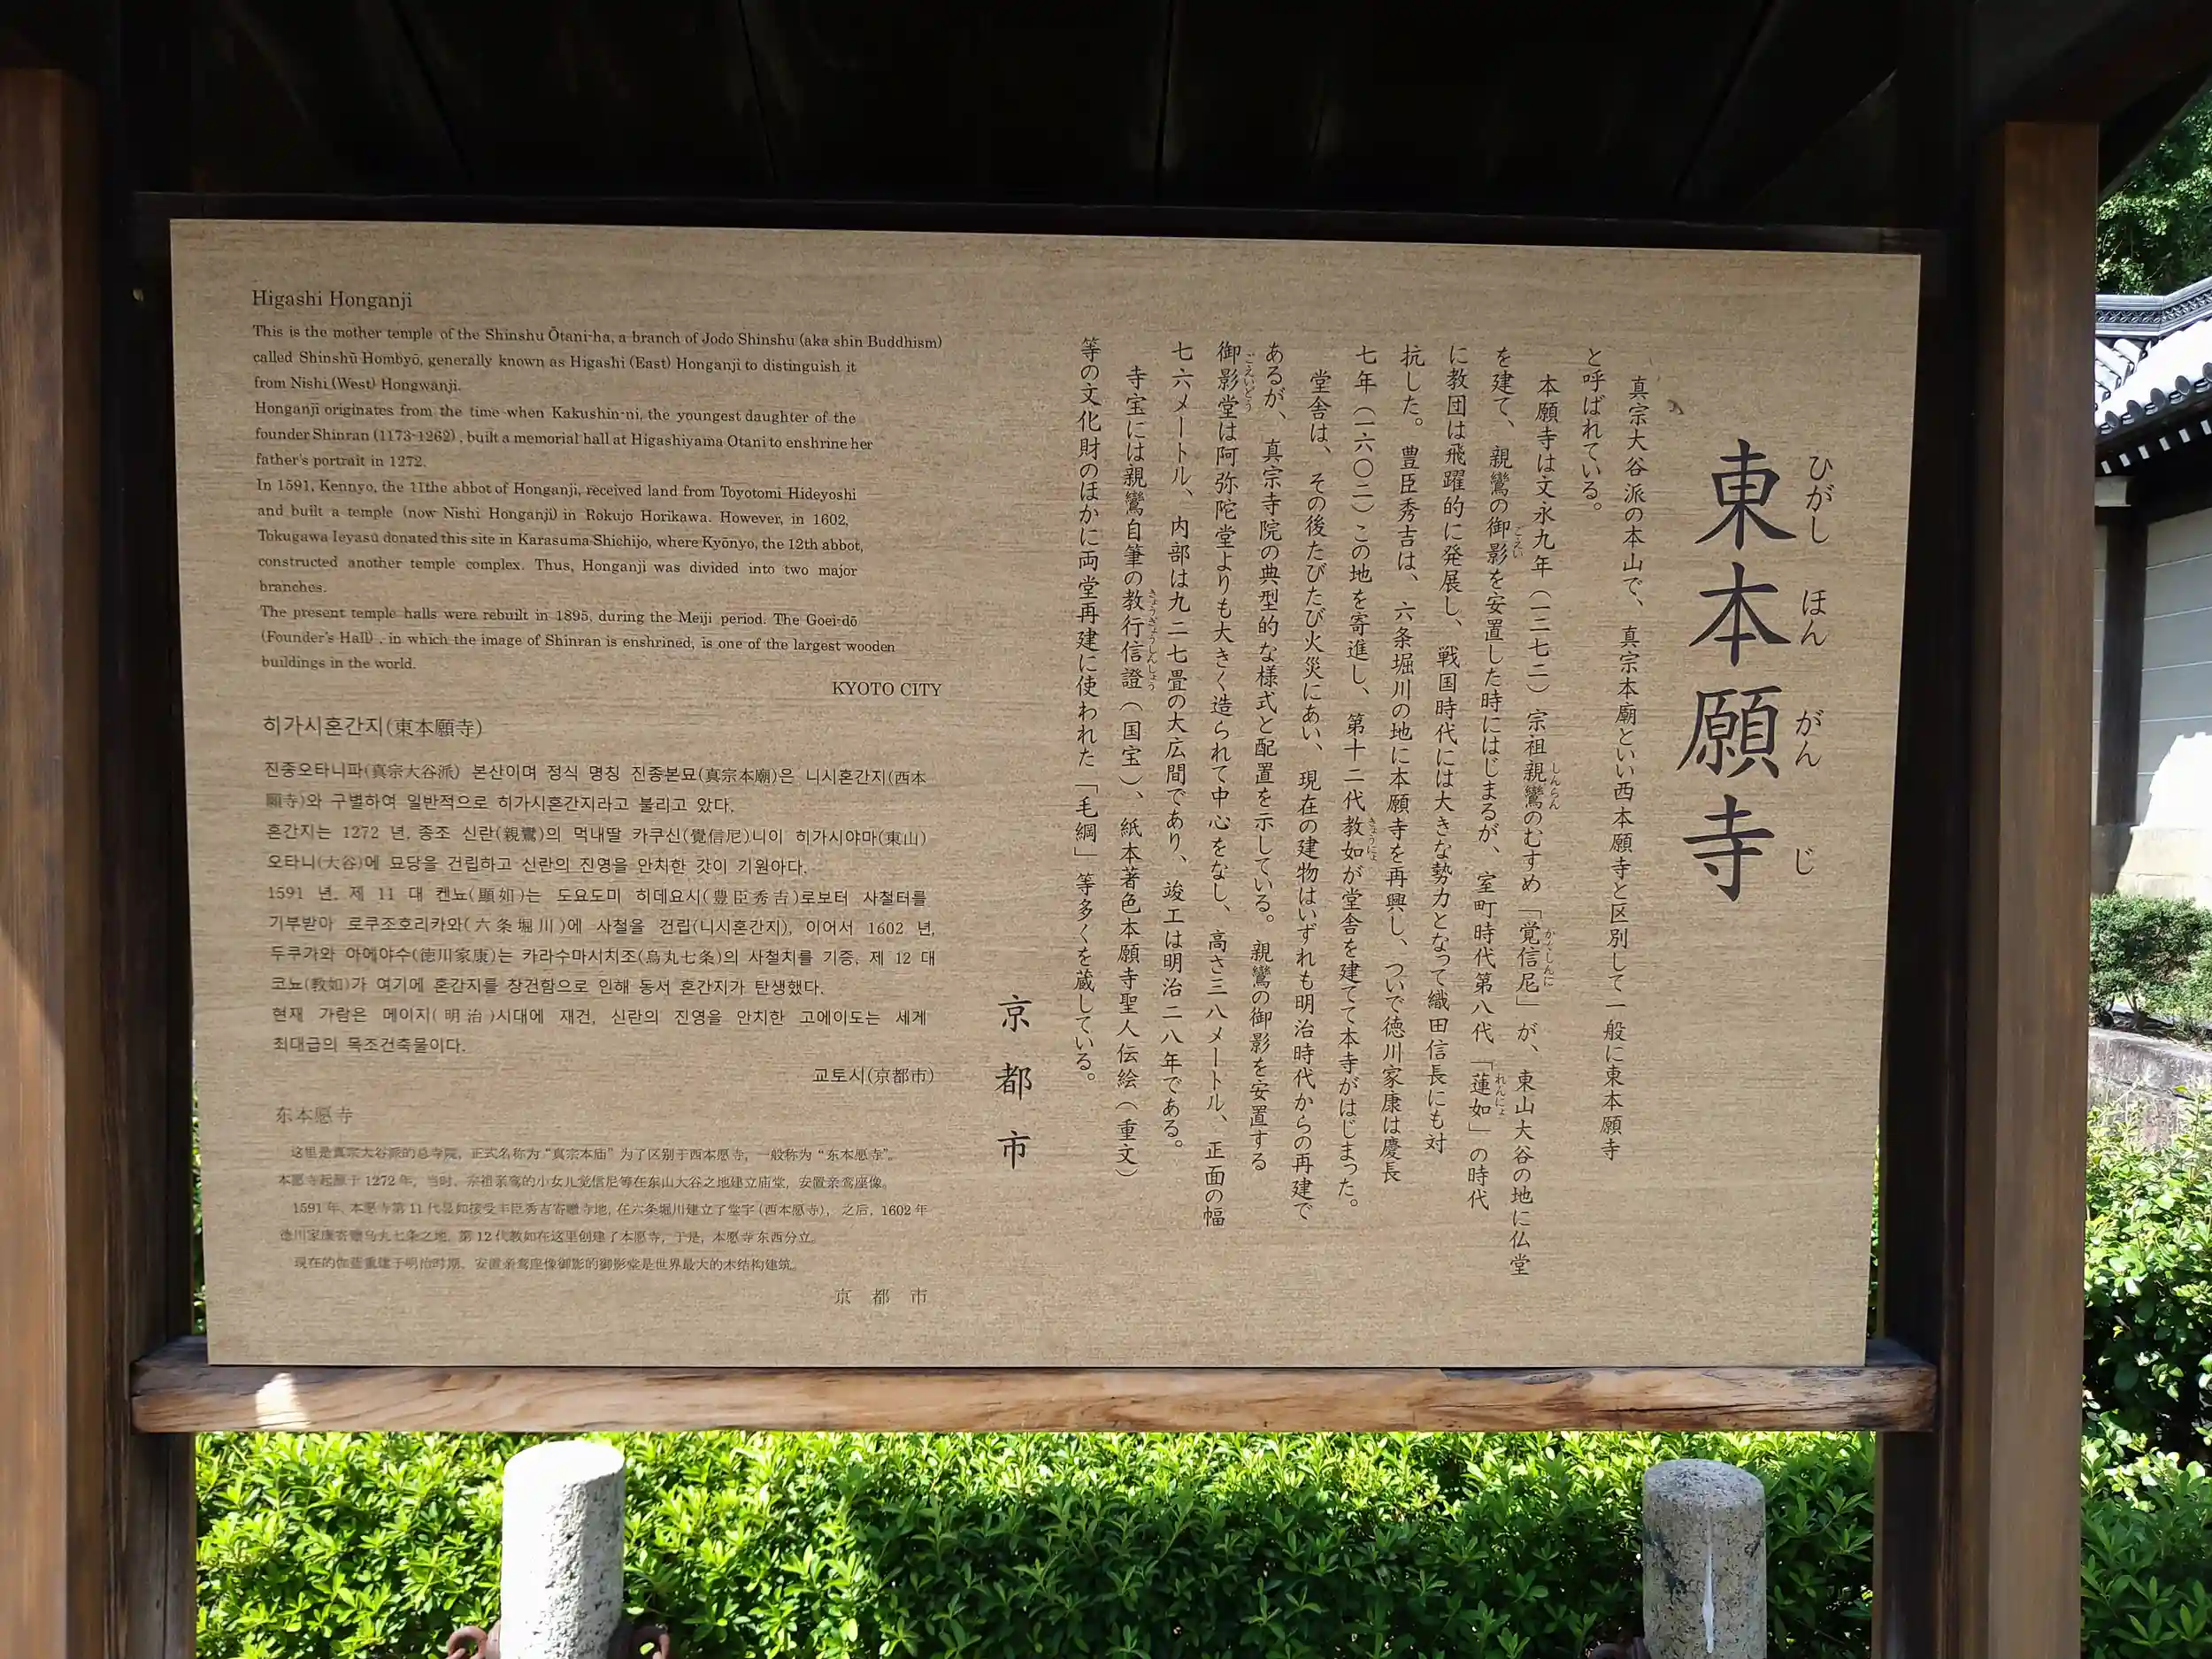 東本願寺
ひがし ほん がん じ
真宗大谷派の本山で、真宗本廟といい西本願寺と区別して一般に東本願寺
と呼ばれている。
本願寺は文永九年（一二七二）宗祖親鸞のむすめ「覚信尼」が、東山大谷の地に仏堂
しんらん かくしんに
を建て、親鸞の御影を安置した時にはじまるが、室町時代第八代「蓮如」の時代
ごえい れんにょ
に教団は飛躍的に発展し、戦国時代には大きな勢力となって織田信長にも対
抗した。豊臣秀吉は、六条堀川の地に本願寺を再興し、ついで徳川家康は慶長
七年（一六〇二）この地を寄進し、第十二代教如が堂舎を建てて本寺がはじまった。
きょうにょ
堂舎は、その後たびたび火災にあい、現在の建物はいずれも明治時代からの再建で
あるが、真宗寺院の典型的な様式と配置を示している。親鸞の御影を安置する
御影堂は阿弥陀堂よりも大きく造られて中心をなし、高さ三八メートル、正面の幅
ごえいどう
七六メートル、内部は九二七畳の大広間であり、竣工は明治二八年である。
寺宝には親鸞自筆の教行信證（国宝）、紙本著色本願寺聖人伝絵（重文）
きょうぎょうしんしょう
等の文化財のほかに両堂再建に使われた「毛綱」等多くを蔵している。
京都市
Higashi Honganji
This is the mother temple of the Shinshu Ōtani-ha, a branch of Jodo Shinshu (aka shin Buddhism)
called Shinshū Hombyō, generally known as Higashi (East) Honganji to distinguish it
from Nishi (West) Hongwanji.
Honganji originates from the time when Kakushin-ni, the youngest daughter of the
founder Shinran (1173-1262) , built a memorial hall at Higashiyama Otani to enshrine her
father's portrait in 1272.
In 1591, Kennyo, the 11the abbot of Honganji, received land from Toyotomi Hideyoshi
and built a temple (now Nishi Honganji) in Rokujo Horikawa. However, in 1602,
Tokugawa Ieyasu donated this site in Karasuma Shichijo, where Kyōnyo, the 12th abbot,
constructed another temple complex. Thus, Honganji was divided into two major
branches.
The present temple halls were rebuilt in 1895, during the Meiji period. The Goei-dō
(Founder's Hall) , in which the image of Shinran is enshrined, is one of the largest wooden
buildings in the world.
KYOTO CITY
히가시혼간지(東本願寺)
진종오타니파(真宗大谷派) 본산이며 정식 명칭 진종본묘(真宗本廟)은 니시혼간지(西本
願寺)와 구별하여 일반적으로 히가시혼간지라고 불리고 았다.
혼간지는 1272 년, 종조 신란(親鸞)의 먹내딸 카쿠신(覺信尼)니이 히가시야마(東山)
오타니(大谷)에 묘당을 건립하고 신란의 진영을 안치한 갓이 기원아다.
1591 년, 제 11 대 켄뇨(顯如)는 도요도미 히데요시(豊臣秀吉)로보터 사철터를
기부받아 로쿠조호리카와(六条堀川)에 사철을 건립(니시혼간지), 이어서 1602 년,
두쿠가와 아에야수(徳川家康)는 카라수마시치조(烏丸七条)의 사철치를 기증, 제 12 대
코뇨(教如)가 여기에 혼간지를 창건함으로 인해 동서 혼간지가 탄생했다.
현재 가람은 메이지(明治)시대에 재건, 신란의 진영을 안치한 고에이도는 세계
최대급의 목조건축물이다.
교토시(京都市)
东本愿寺
这里是真宗大谷派的总寺院，正式名称为“真宗本庙”为了区别于西本愿寺，一般称为“东本愿寺”。
本愿寺起源于 1272 年，当时，宗祖亲鸾的小女儿觉信尼等在东山大谷之地建立庙堂，安置亲鸾座像。
1591 年，本愿寺第 11 代显如接受丰臣秀吉寄赠寺地，在六条堀川建立了堂宇（西本愿寺），之后，1602 年
德川家康寄赠乌丸七条之地，第 12 代教如在这里创建了本愿寺，于是，本愿寺东西分立。
现在的伽蓝重建于明治时期，安置亲鸾座像御影的御影堂是世界最大的木结构建筑。
京都市